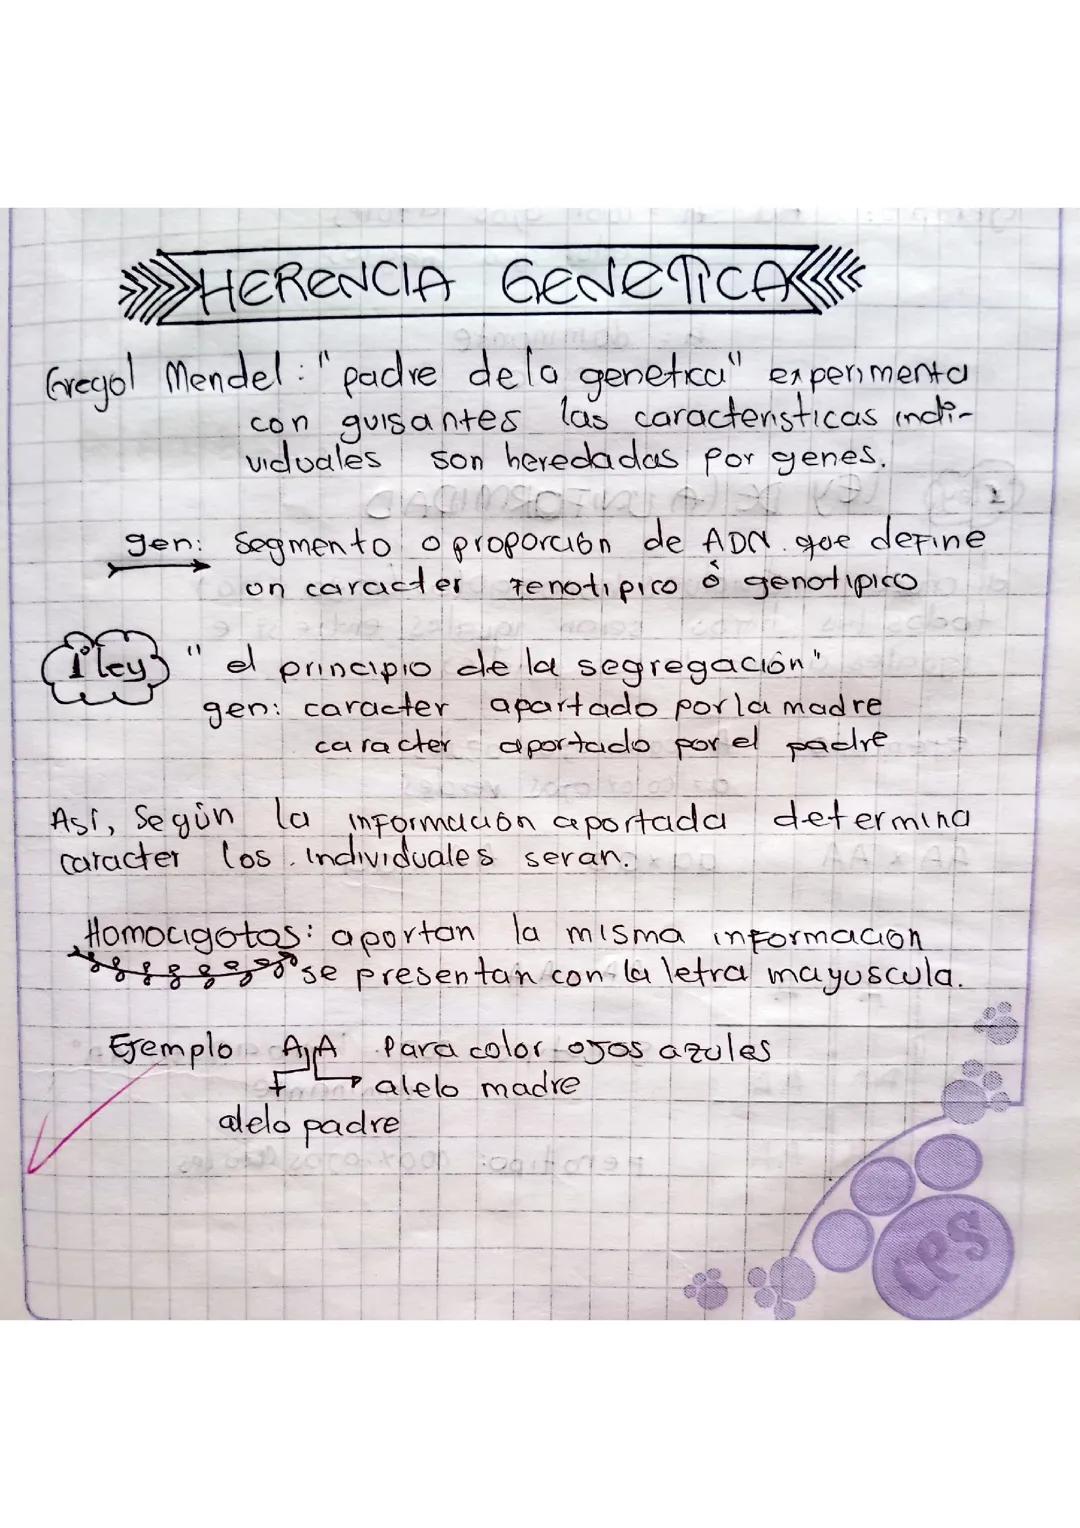 HERENCIA GENETICA
Gregol Mendel: "padre de la genetica" experimenta
con guisantes las caracteristicas indi-
viduales son heredadas por genes.
gen: segmento o proporción de ADN que define
un caracter fenotipico ó genotipico
1° ley " el principio de la segregación"
gen: caracter apartado por la madre
caracter aportado por el padre
Así, Según la información aportada determina
caracter los individuales seran.
Homocigotos: aportan la misma informacion
se presentan con la letra mayuscula.
Ejemplo AA Para color ojos azules
alelo madre
alelo padre
CPS